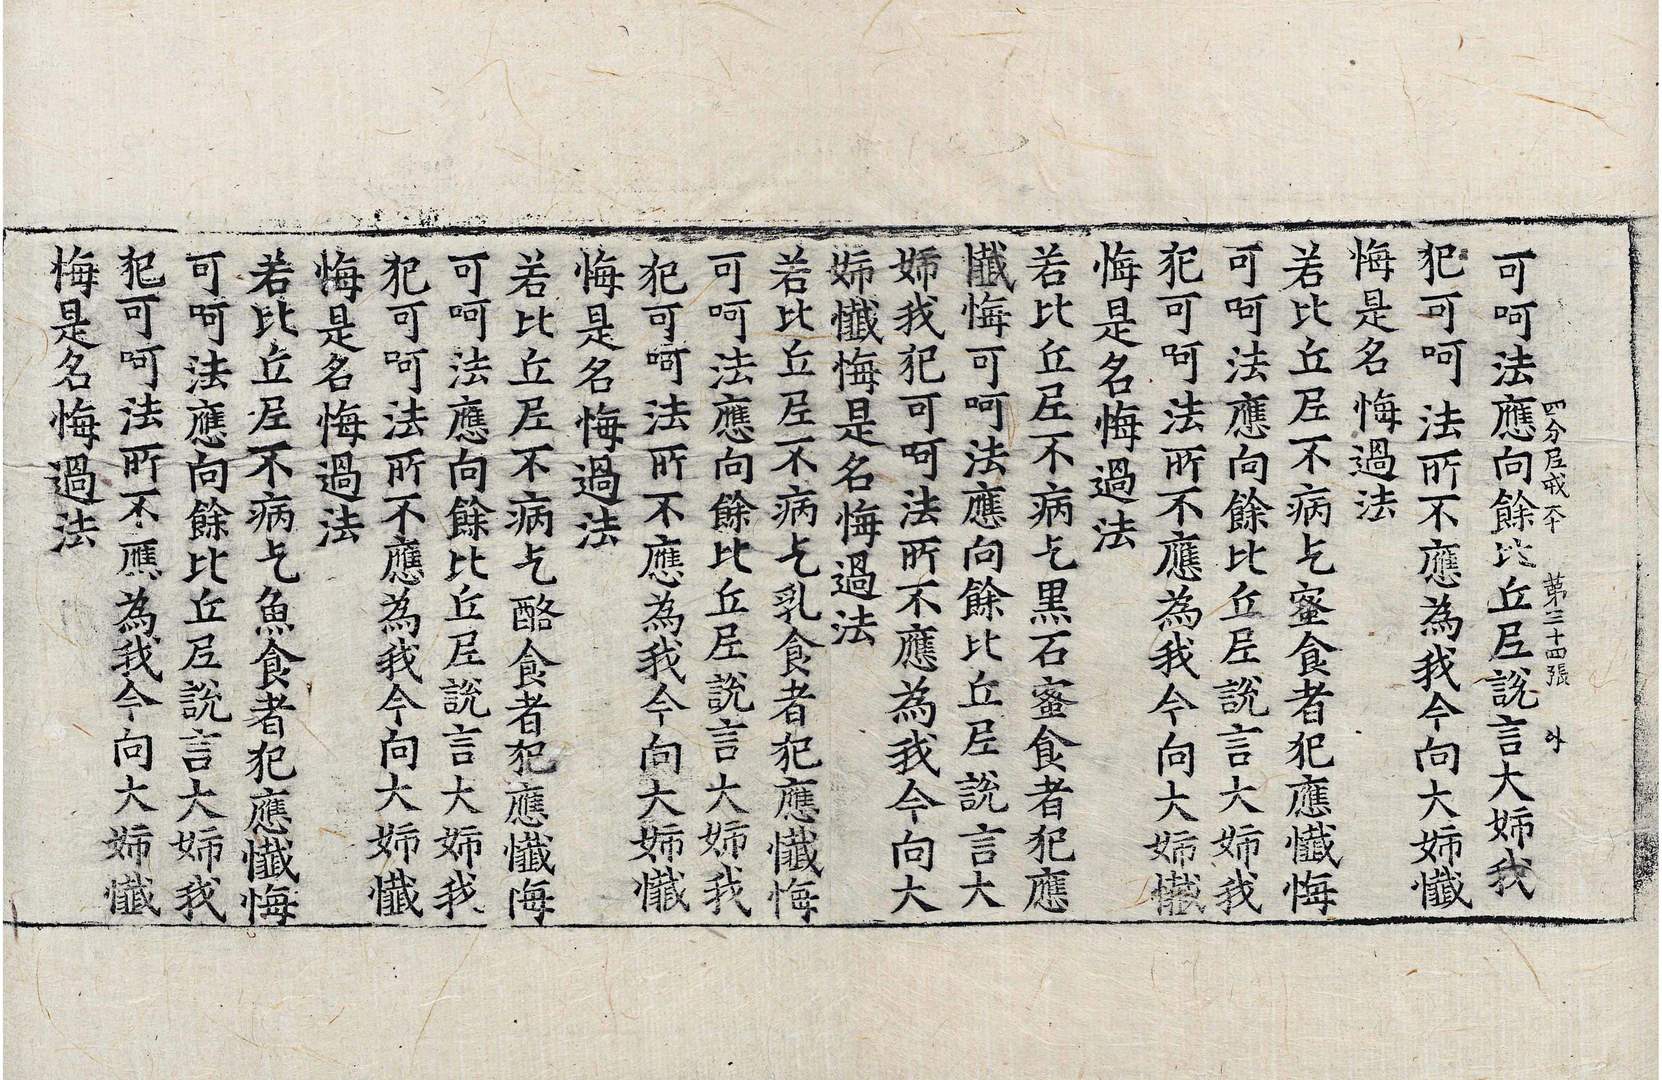 四分尼戒本 第三十四張 外
可呵法應向餘比丘尼說言大姉我
犯可呵法所不應為我今向大姉懺
悔是名悔過法
若比丘尼不病乞蜜食者犯應懺悔
可呵法應向餘比丘尼說言大姉我
犯可呵法所不應為我今向大姉懺
悔是名悔過法
若比丘尼不病乞黑石蜜食者犯應
懺悔可呵法應向餘比丘尼說言大
姉我犯可呵法所不應為我今向大
姉懺悔是名悔過法
若比丘尼不病乞乳食者犯應懺悔
可呵法應向餘比丘尼說言大姉我
犯可呵法所不應為我今向大姉懺
悔是名悔過法
若比丘尼不病乞酪食者犯應懺悔
可呵法應向餘比丘尼說言大姉我
犯可呵法所不應為我今向大姉懺
悔是名悔過法
若比丘尼不病乞魚食者犯應懺悔
可呵法應向餘比丘尼說言大姉我
犯可呵法所不應為我今向大姉懺
悔是名悔過法